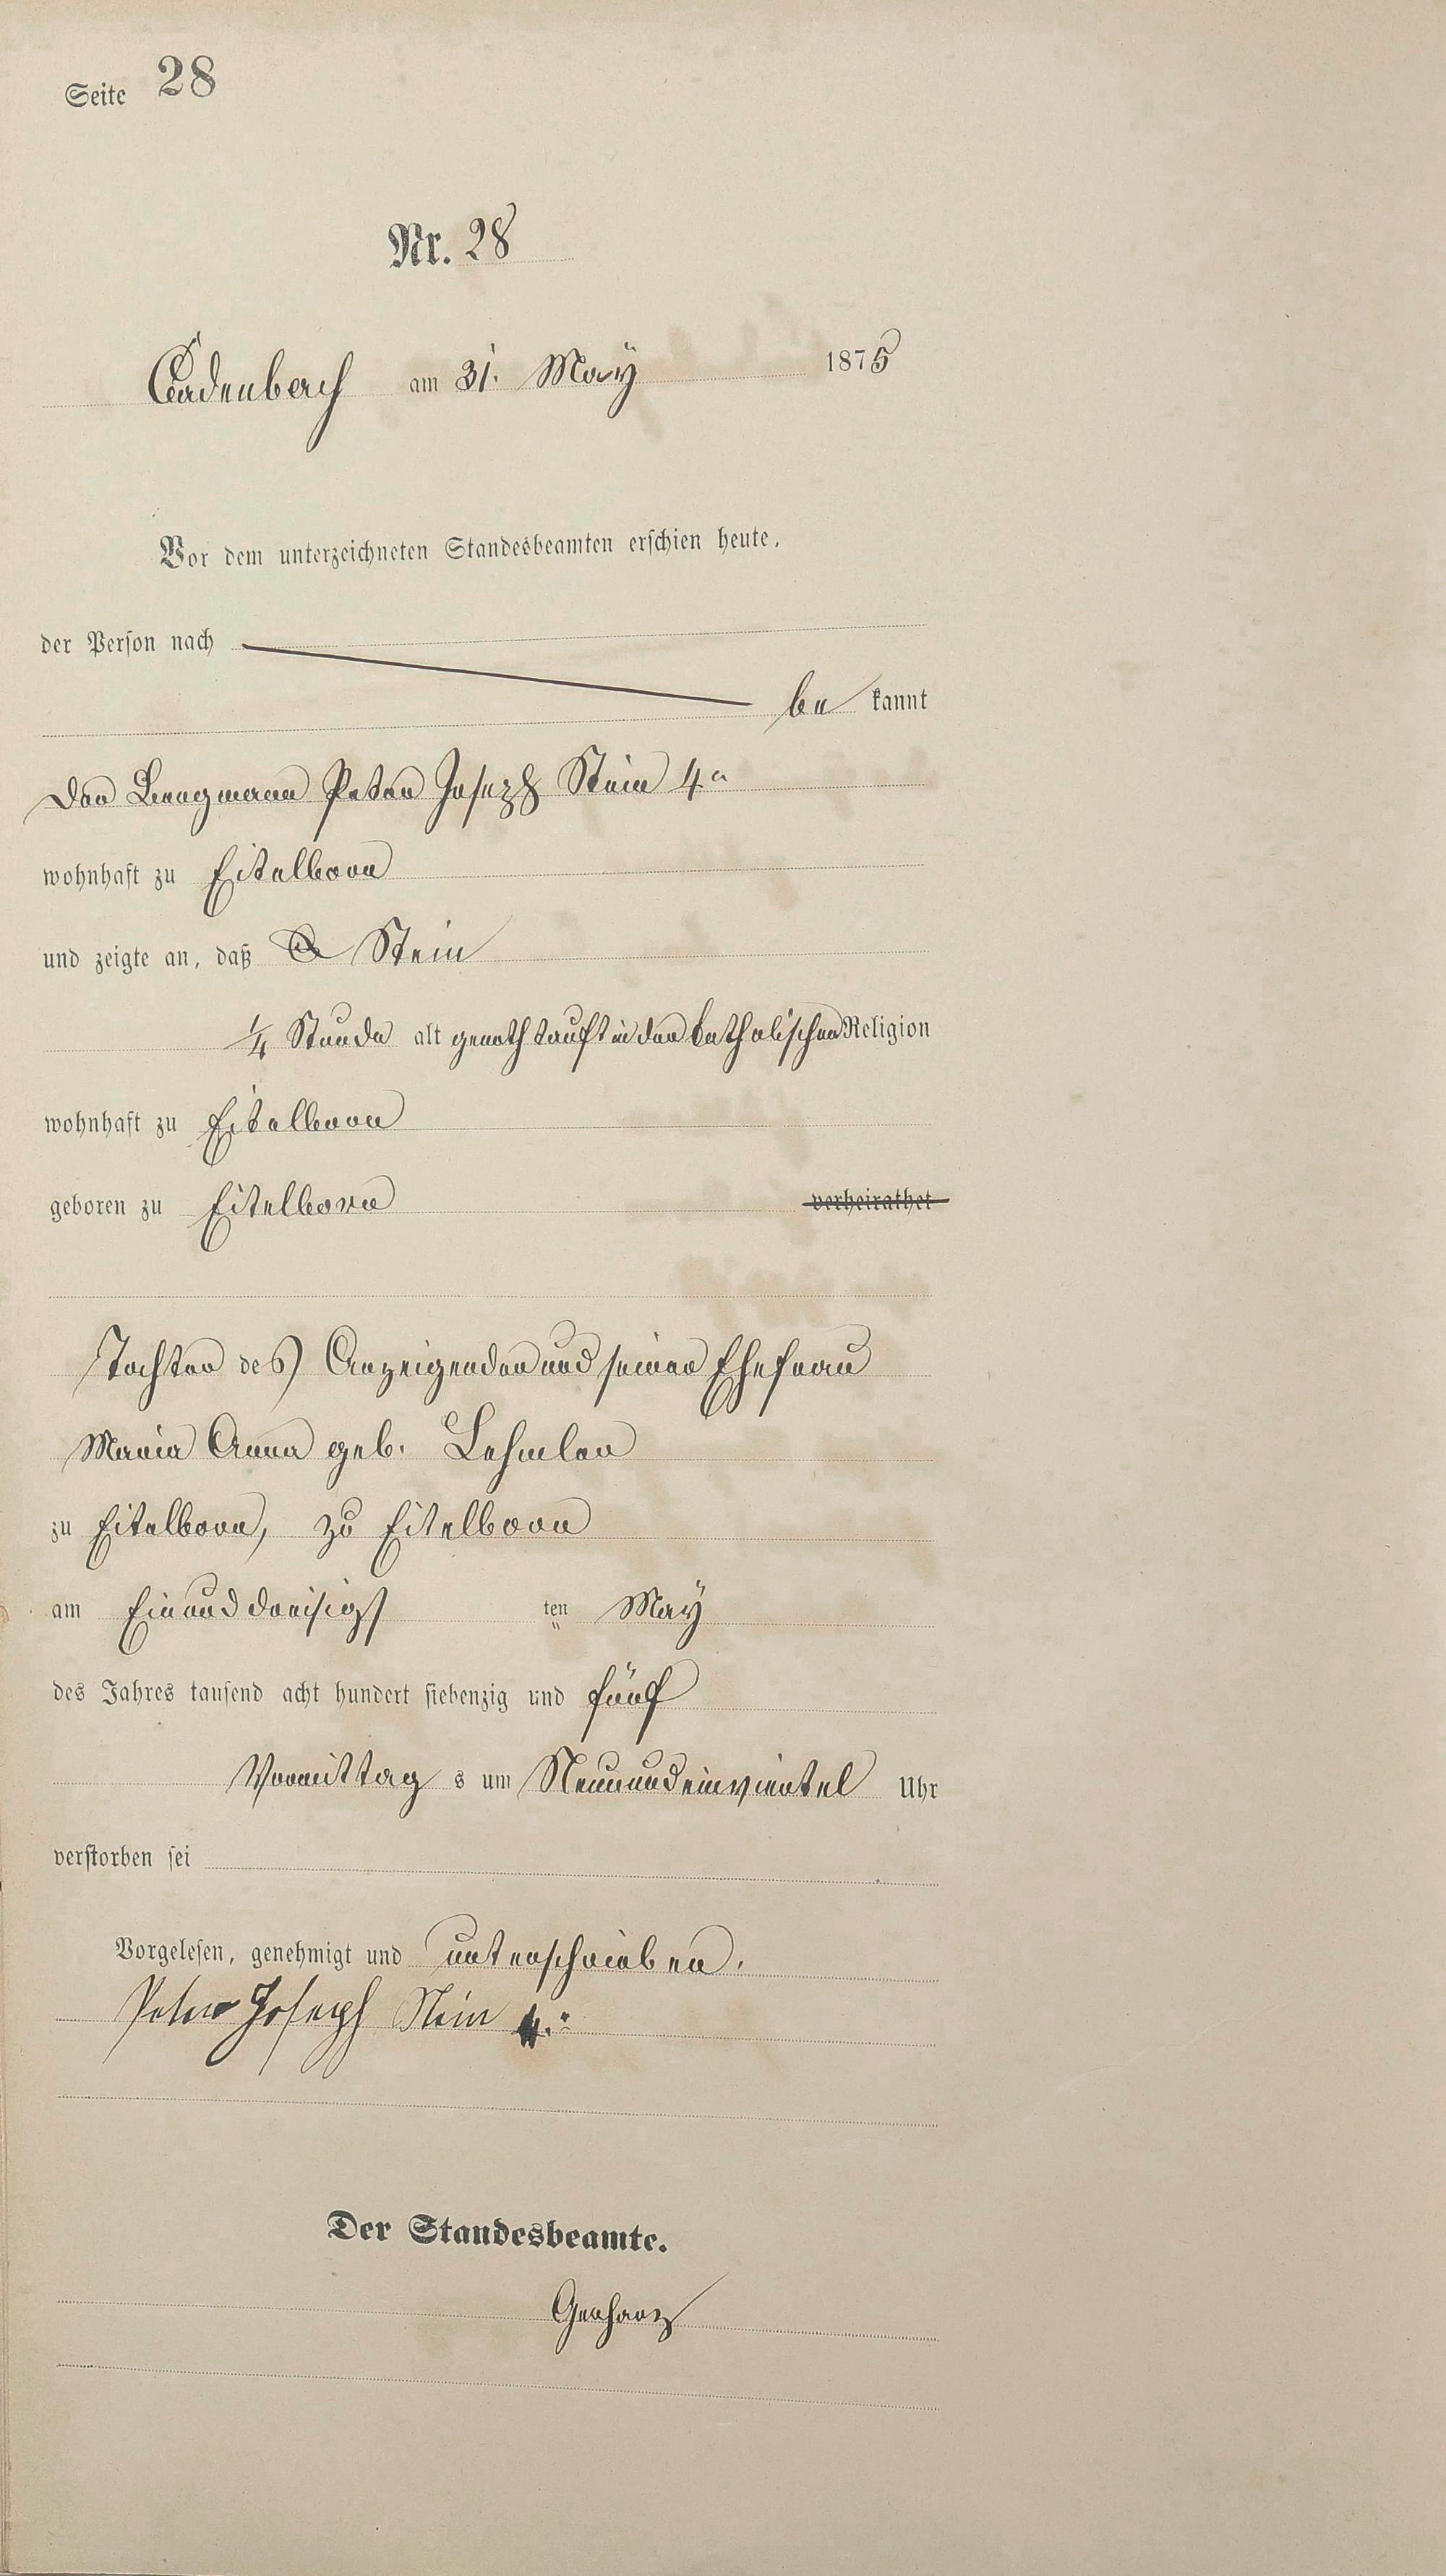 Seite 28
Nr. 28
Cadenbach am 31. May 1875
Vor dem unterzeichneten Standesbeamten erschien heute,
der Person nach
be kannt
Der Bergmann Peter Joseph Stein 4r
wohnhaft zu Eitelborn
und zeigte an, daß Stein
1/4 Stunde alt genothtauft in der katholischen Religion
wohnhaft zu Eitelborn
geboren zu Eitelborn verheirathet
Tochter des Anzeigenden und seiner Ehefrau
Maria Anna geb. Lehmler
zu Eitelborn, zu Eitelborn
am Einunddreisigs ten May
des Jahres tausend acht hundert siebenzig und fünf
Vormittag s um Neunundeinviertel Uhr
verstorben sei
Vorgelesen, genehmigt und unterschrieben.
Peter Joseph Stein 4.
Der Standesbeamte.
Gerharz